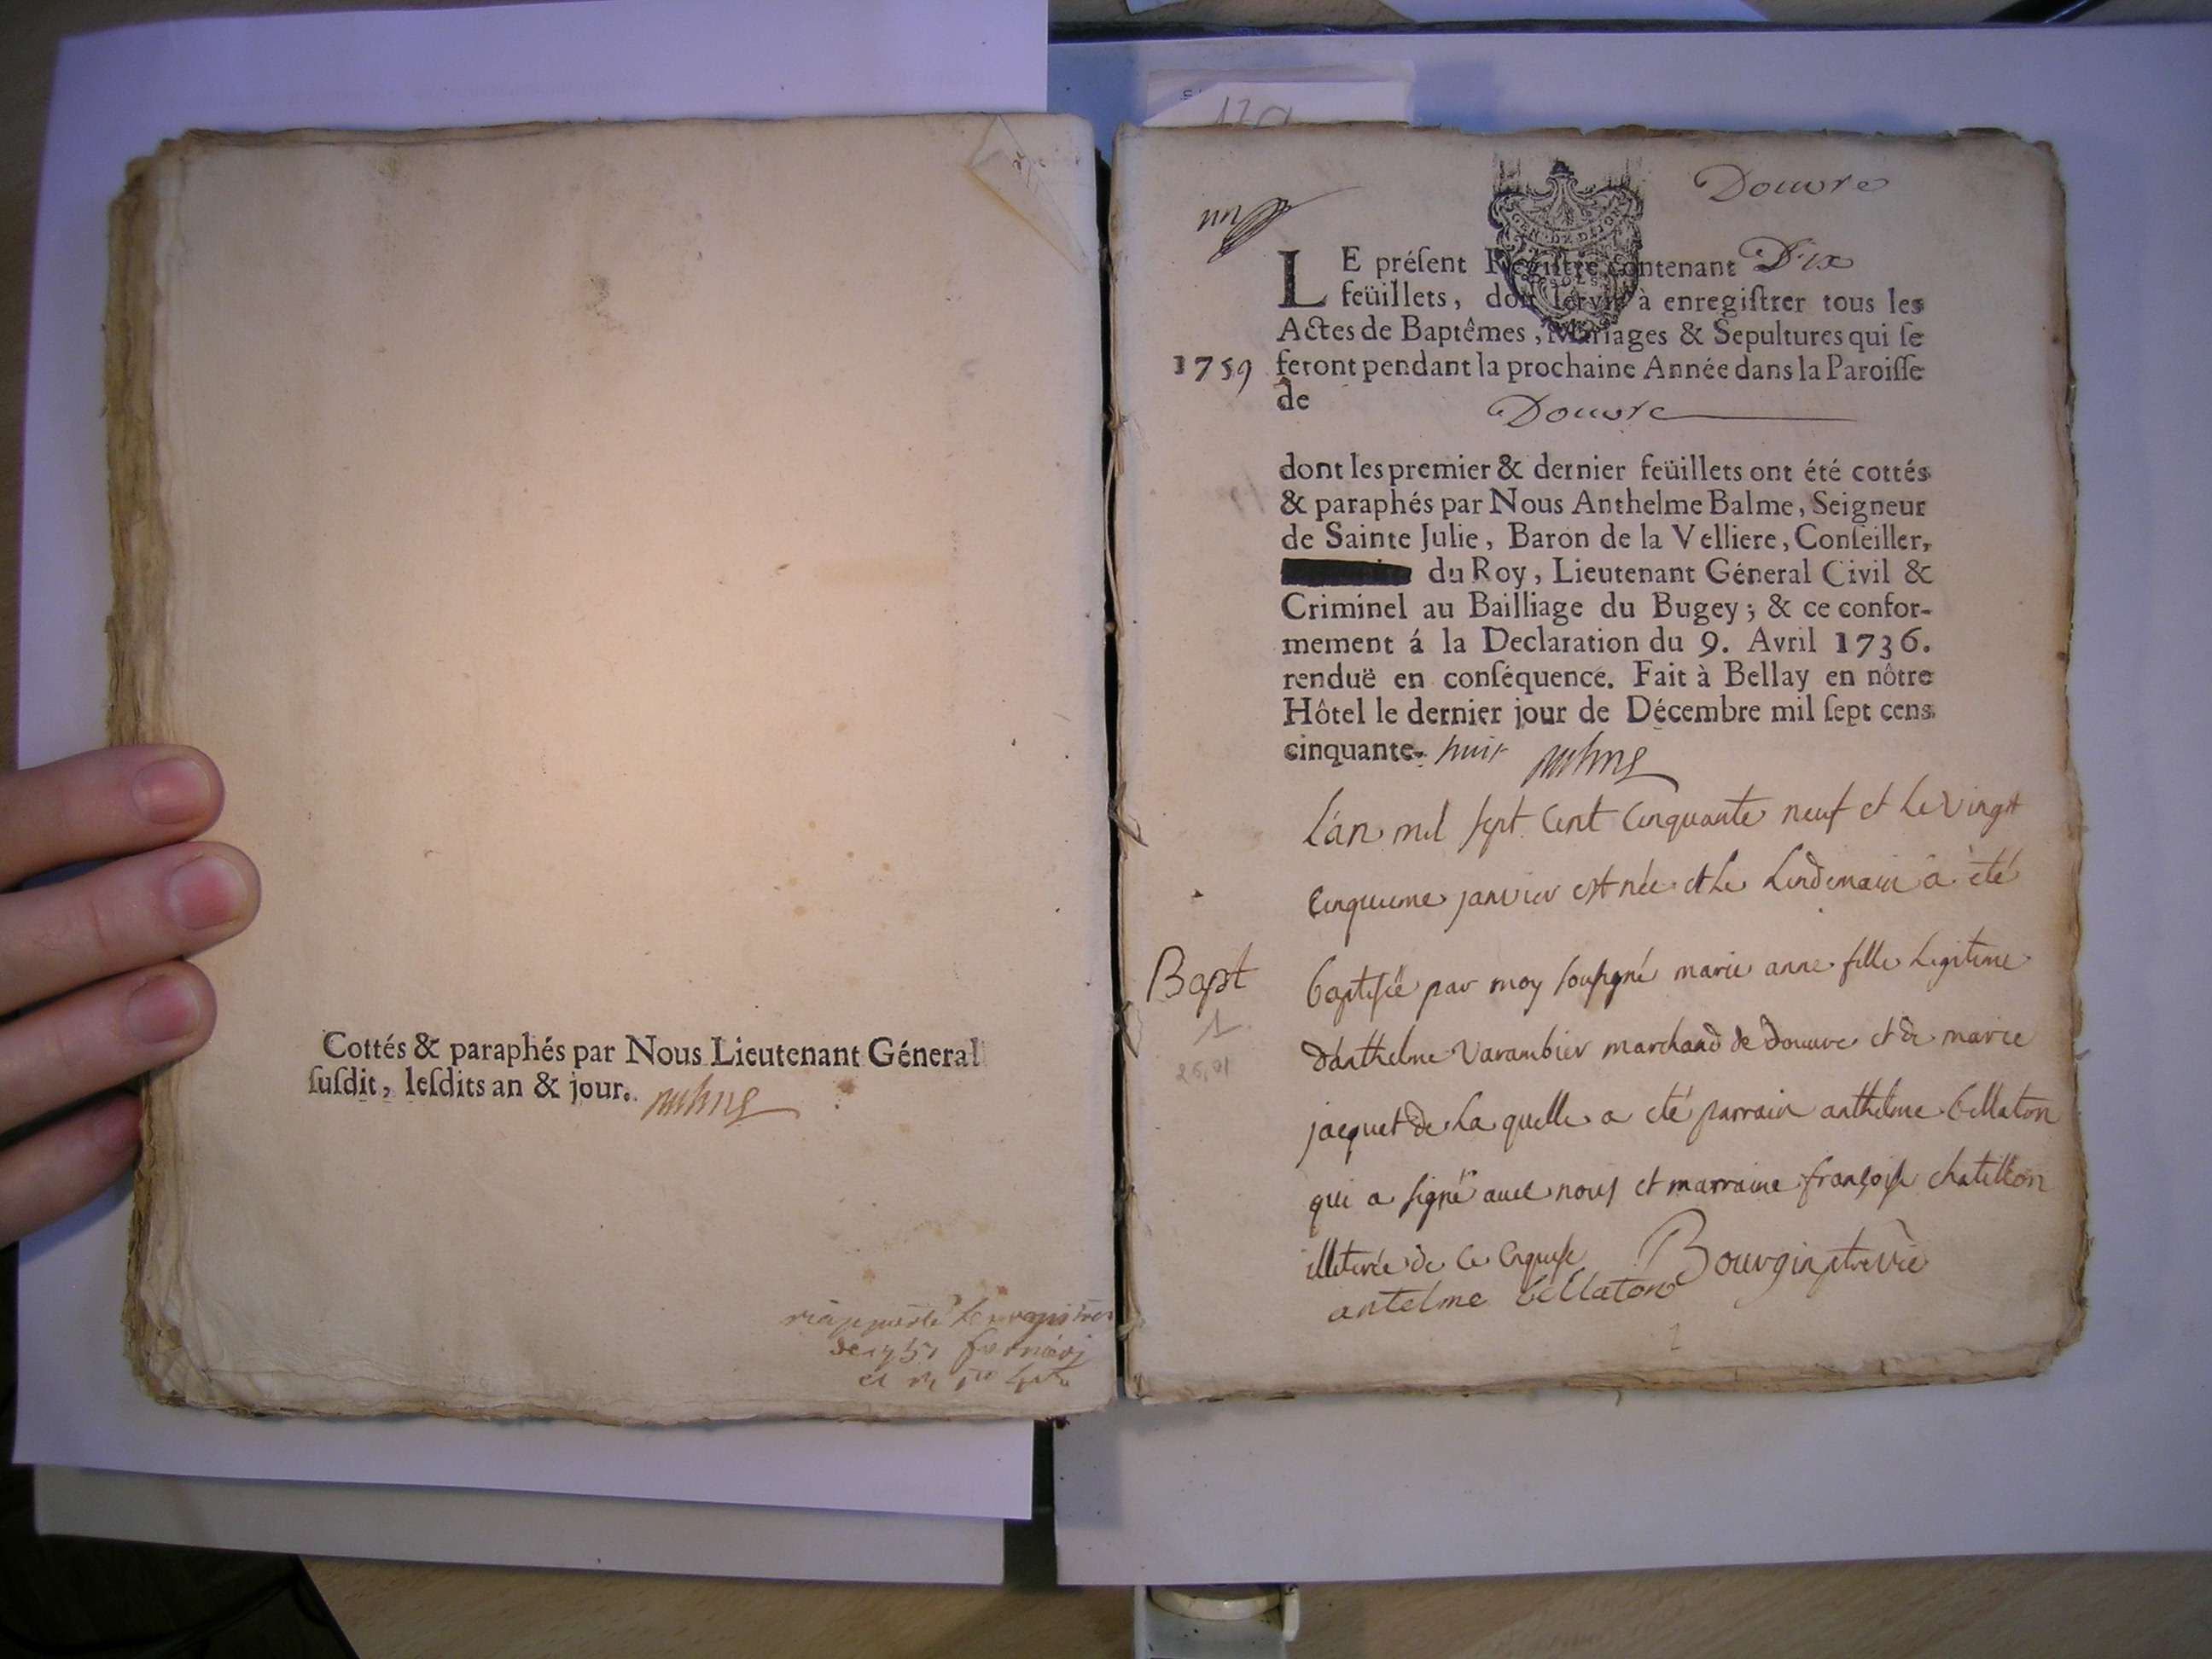 Cottés & paraphés par Nous Lieutenant Géneral
ſuſdit, leſdits an & jour.
de
Douvre
un
LE préſent Regiſtre contenant Dix
feüillets, doit ſervir à enregiſtrer tous les
Actes de Baptêmes, Mariages & Sepultures qui ſe
1759 feront pendant la prochaine Année dans la Paroiſſe
de Douvre
dont les premier & dernier feüillets ont été cottés
& paraphés par Nous Anthelme Balme, Seigneur
de Sainte Julie, Baron de la Velliere, Conſeiller,
du Roy, Lieutenant Géneral Civil &
Criminel au Bailliage du Bugey; & ce confor-
mement á la Declaration du 9. Avril 1736.
renduë en conſéquence. Fait à Bellay en nôtre
Hôtel le dernier jour de Décembre mil ſept cens
cinquante-huit
L'an mil sept cent cinquante neuf et le vingt
cinquieme janvier est née et le lendemain a été
Bapt baptisée par moy soussigné marie anne fille legitime
1 d'anthelme Varambier marchand de douvre et de marie
26,01 jacquet de la quelle a eté parrain anthelme bellaton
qui a signé avec nous et marraine françoise chatillon
illiterée de ce enquise Bourgin
antelme bellaton